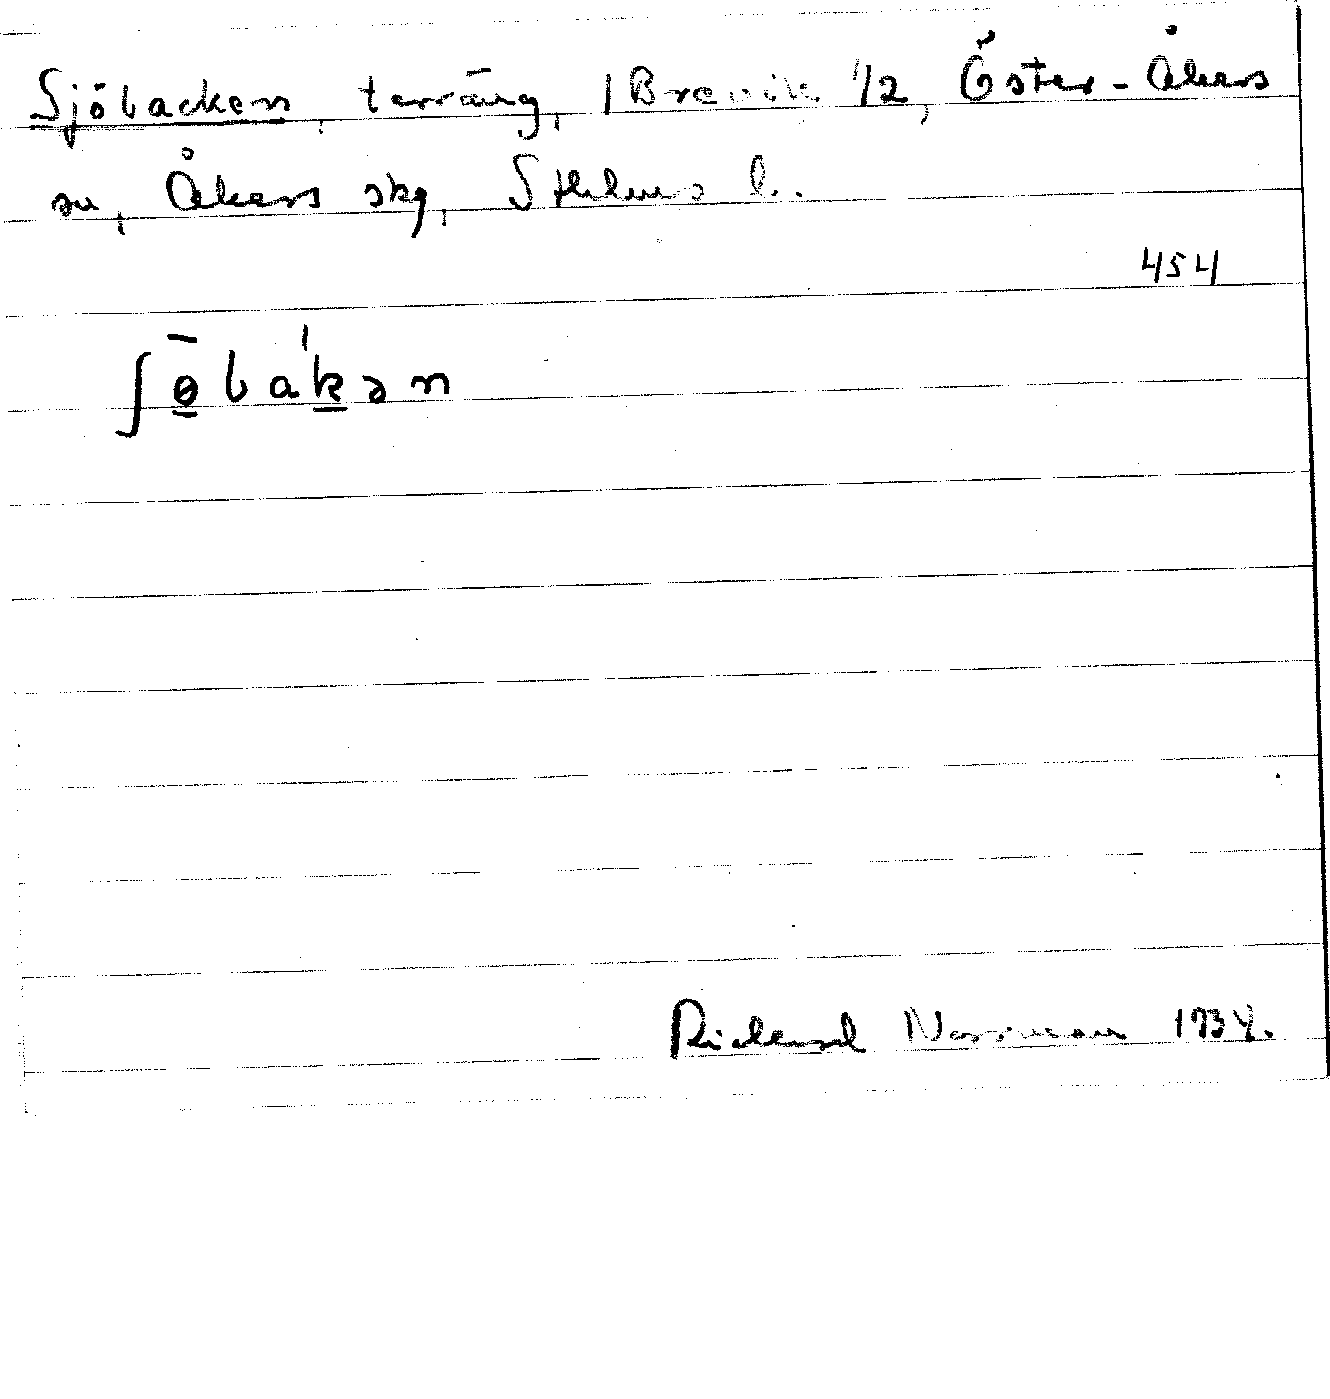 Sjöbacken, terräng, 1 Brevik 1/2, Öster-Åkers
sn, Åkers skg, Sthlms l.
454
ʃɵ̄bak'ən
Rickard Norrman 1934.